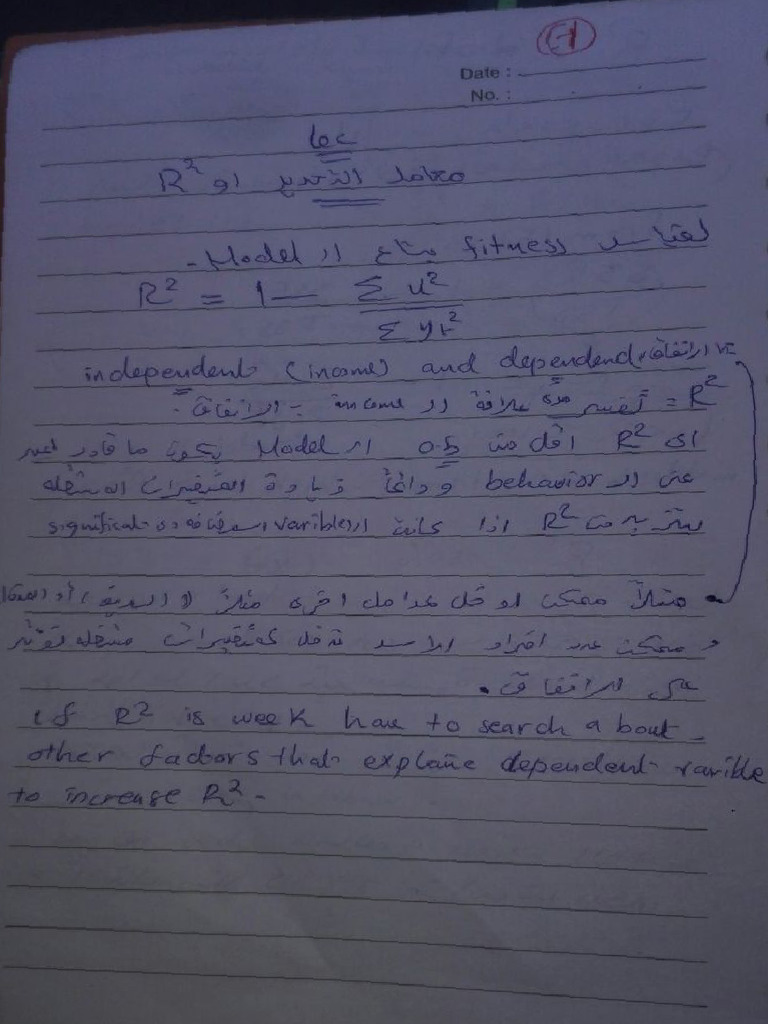 Date :
No. :
معامل التحديد او R²
لقياس fitness بتاع ال Model -
R² = 1 - Σu² / Σyt²
independent (income) and dependend الانفاق
R² = تفسير علاقة ال income بـ الانفاق
اى R² اقل من 0.5 ال Model يكون ما قادر اعبر
عن ال behavior ودائماً زيادة المتغيرات المستقله
ستزيد من R² اذا كانت ال varibles المضافه دى significal
مثلاً ممكن ادخل عوامل اخرى مثلاً
وممكن عدد افراد الاسره تدخل كمتغيرات مستقله تؤثر
على الانفاق .
if R² is week have to search about
other factors that explane dependent varible
to increase R² -